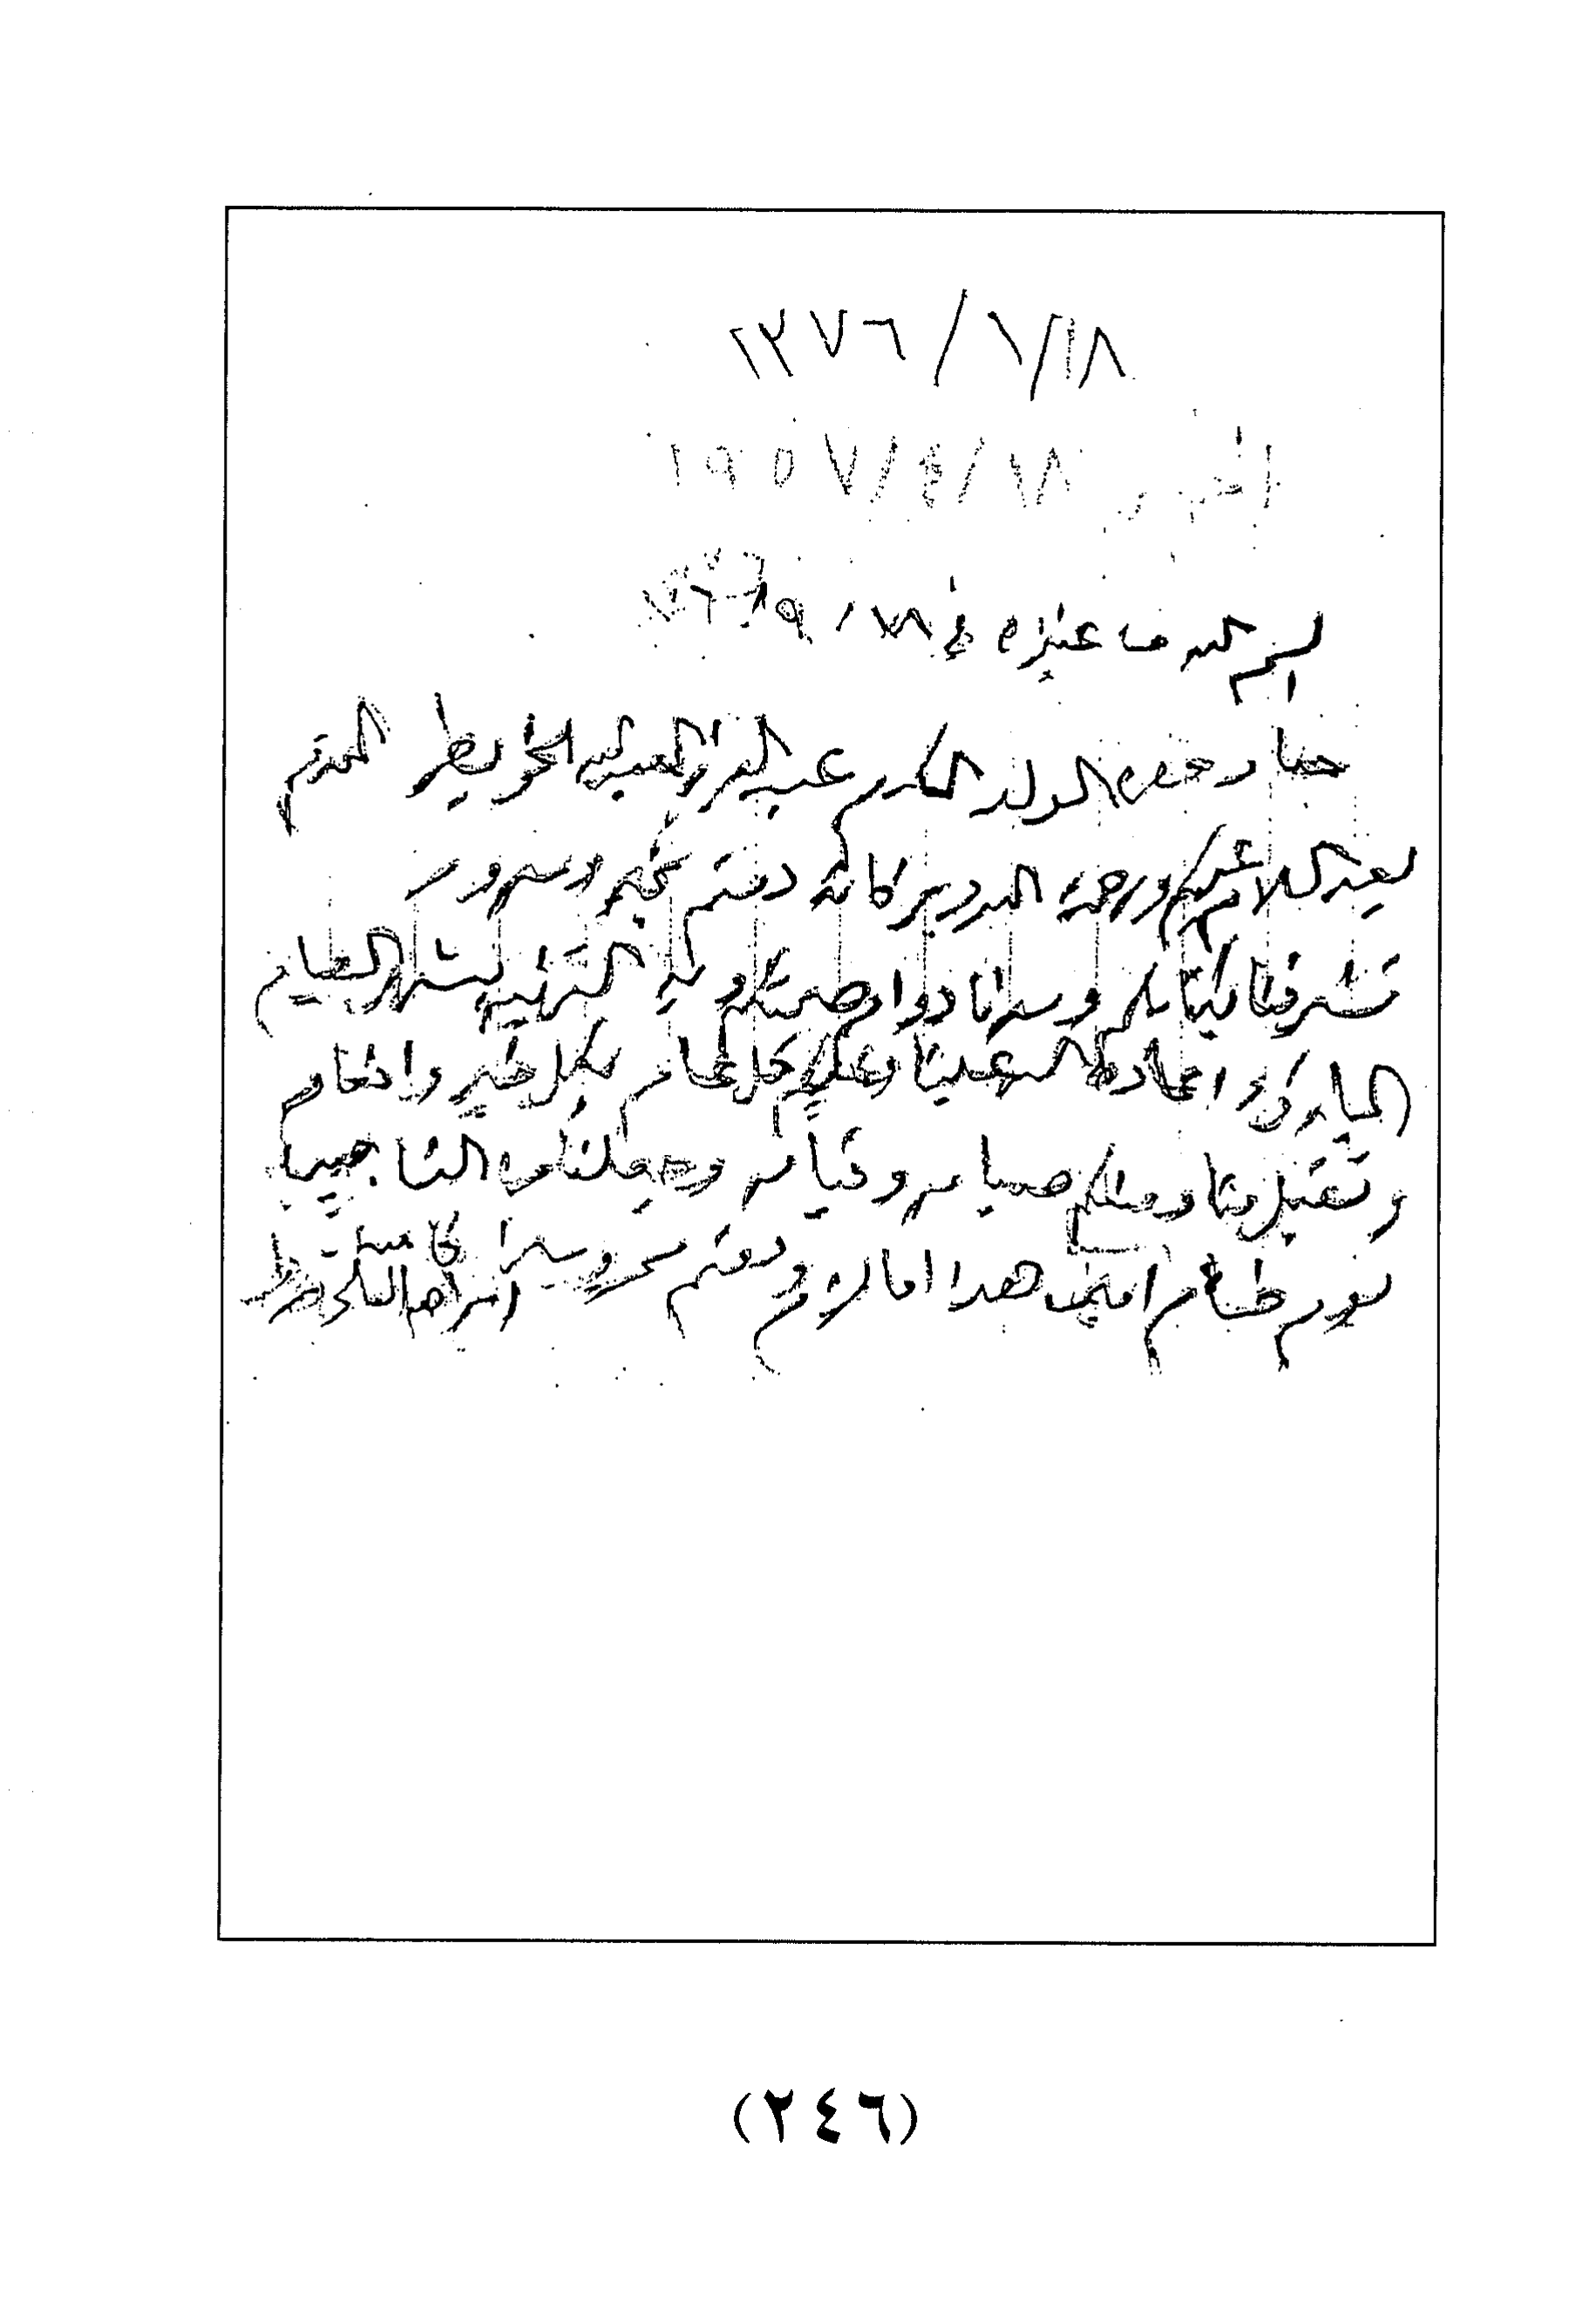 ١٣٧٦/١/١٨
١٩٥٧/٤/١٨
بسم الله من عنيزه في ١٨/٩
جناب حضرة الولد المكرم عبد العزيز العبد الله الخويطر المحترم
بعد السلام عليكم ورحمة الله وبركاته دمتم بخير وسرور
تشرفنا بكتابكم وسرنا دوام صحتكم و التهنيه بشهر الصيام
المبارك اعاده الله علينا وعليكم كل عام بكل خير وانعام
وتقبل منا ومنكم صيامه وقيامه وجعلنا من الناجين
يوم امين هذا مالزم ودمتم محروسين
ابراهيم
(٢٤٦)